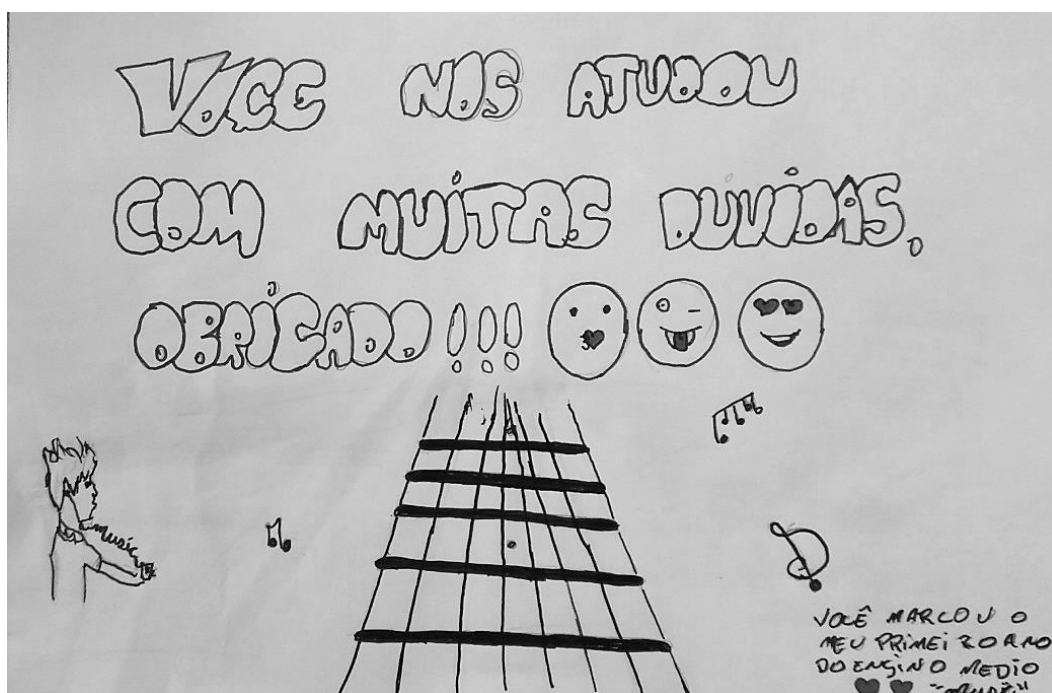 VOCE NOS ATUDOU
COM MUITAS DUVIDAS.
OBRIGADO!!!
music
VOCÊ MARCOU O
MEU PRIMEIRO ANO
DO ENSINO MEDIO